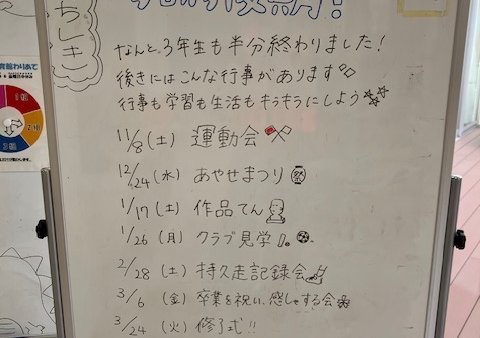 ちしき
なんと、3年生も半分終わりました!
後きにはこんな行事があります
行事も学習も生活もキラキラにしよう
11/8(土) 運動会
12/24(水) あやせまつり 祭
1/17(土) 作品てん
1/26(月) クラブ見学
2/28(土) 持久走記録会
3/6(金) 卒業を祝い、感しゃする会
3/24(火) 修了式!!
わりあて
1組
2組
3組